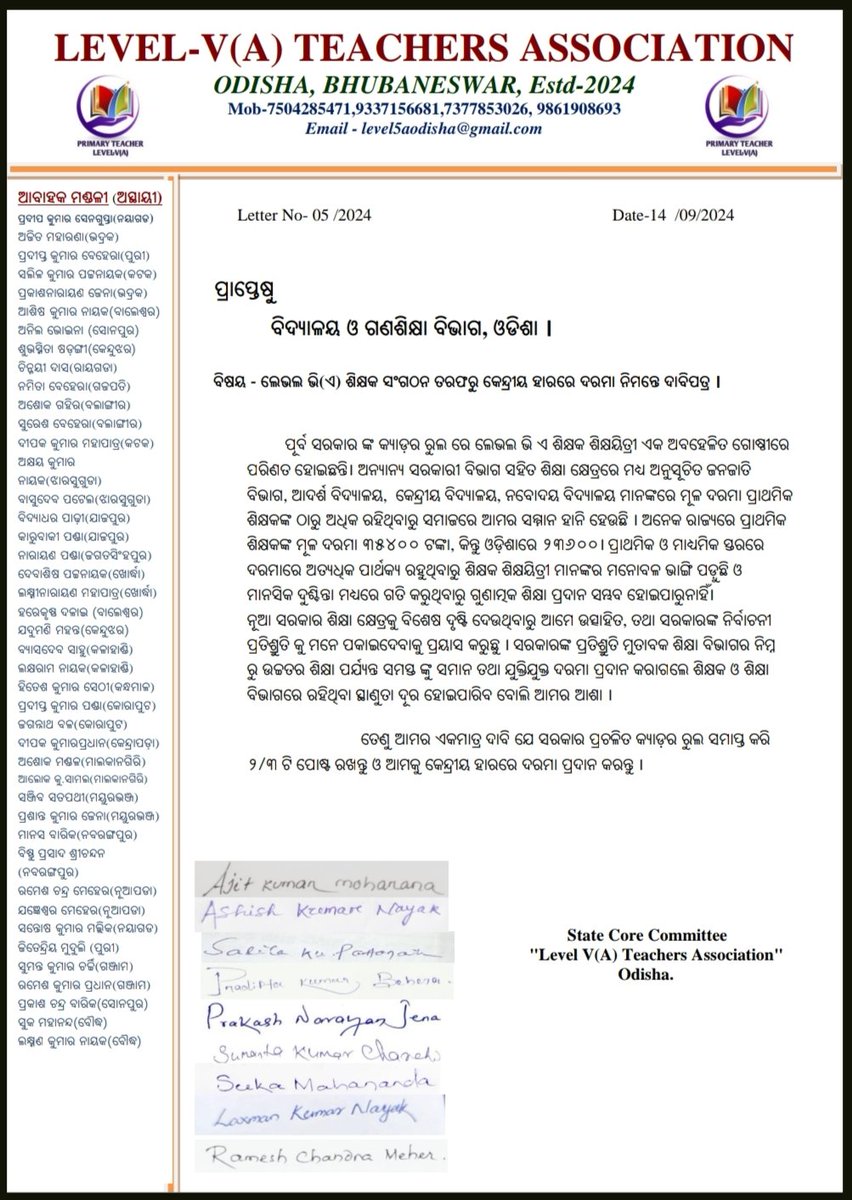 LEVEL-V(A) TEACHERS ASSOCIATION
ODISHA, BHUBANESWAR, Estd-2024
Mob-7504285471,9337156681,7377853026, 9861908693
Email - level5aodisha@gmail.com
PRIMARY TEACHER
LEVEL-V(A)
PRIMARY TEACHER
LEVEL-V(A)
ଆବାହକ ମଣ୍ଡଳୀ (ଅସ୍ଥାୟୀ)
ପ୍ରଦୀପ କୁମାର ସେନଗୁପ୍ତା(ନୟାଗଡ)
ଅଜିତ ମହାରଣା(ଭଦ୍ରକ)
ପ୍ରଦୀପ୍ତ କୁମାର ବେହେରା(ପୁରୀ)
ସଲିଳ କୁମାର ପଟ୍ଟନାୟକ(କଟକ)
ପ୍ରକାଶନାରାୟଣ ଜେନା(ଭଦ୍ରକ)
ଆଶିଷ କୁମାର ନାୟକ(ବାଲେଶ୍ଵର)
ଅନିଲ ଭୋଇନା (ସୋନପୁର)
ଶୁଭସ୍ମିତା ଷଡ଼ଙ୍ଗୀ(କେନ୍ଦୁଝର)
ଚିନ୍ମୟୀ ଦାସ(ରାୟଗଡା)
ନମିତା ବେହେରା(ଗଜପତି)
ଅଶୋକ ଗହିର(ବଲାଙ୍ଗୀର)
ସୁରେଶ ବେହେରା(ବଲାଙ୍ଗୀର)
ଦୀପକ କୁମାର ମହାପାତ୍ର(କଟକ)
ଅକ୍ଷୟ କୁମାର
ନାୟକ(ଝାରସୁଗୁଡା)
ବାସୁଦେବ ପଟେଲ(ଝାରସୁଗୁଡା)
ବିଦ୍ୟାଧର ପାଢ଼ୀ(ଯାଜପୁର)
କାରୁବାକୀ ପଣ୍ଡା(ଯାଜପୁର)
ନାରାୟଣ ପଣ୍ଡା(ଜଗତସିଂହପୁର)
ଦେବାଶିଷ ପଟ୍ଟନାୟକ(ଖୋର୍ଦ୍ଧା)
ଲକ୍ଷ୍ମୀନାରାୟଣ ମହାପାତ୍ର(ଖୋର୍ଦ୍ଧା)
ହରେକୃଷ୍ଣ ଦଢାଇ (ବାଲେଶ୍ଵର)
ଯଦୁମଣି ମହନ୍ତ(କେନ୍ଦୁଝର)
ବ୍ୟାସଦେବ ସାହୁ(କଳାହାଣ୍ଡି)
ଲକ୍ଷରାମ ନାୟକ(କଳାହାଣ୍ଡି)
ହିତେଶ କୁମାର ସେଠୀ(କନ୍ଧମାଳ)
ପ୍ରଦୀପ୍ତ କୁମାର ପଣ୍ଡା(କୋରାପୁଟ)
ଜଗନ୍ନାଥ ବଳ(କୋରାପୁଟ)
ଦୀପକ କୁମାରପ୍ରଧାନ(କେନ୍ଦ୍ରାପଡ଼ା)
ଅଶୋକ ମଣ୍ଡଳ(ମାଲକାନଗିରି)
ଆଲୋକ କୁ.ସାମଲ(ମାଲକାନଗିରି)
ସଞ୍ଜିବ ସତପଥୀ(ମୟୁରଭଞ୍ଜ)
ପ୍ରଶାନ୍ତ କୁମାର ଜେନା(ମୟୁରଭଞ୍ଜ)
ମାନସ ବାରିକ(ନବରଙ୍ଗପୁର)
ବିଷ୍ଣୁ ପ୍ରସାଦ ଶ୍ରୀଚନ୍ଦନ
(ନବରଙ୍ଗପୁର)
ରମେଶ ଚନ୍ଦ୍ର ମେହେର(ନୂଆପଡା)
ଯଜ୍ଞେଶ୍ଵର ମେହେର(ନୂଆପଡା)
ସନ୍ତୋଷ କୁମାର ମଲ୍ଲିକ(ନୟାଗଡ)
ଜିତେନ୍ଦ୍ରିୟ ମୁଦୁଲି (ପୁରୀ)
ସୁମନ୍ତ କୁମାର ଚର୍ଚ୍ଚି(ଗଞ୍ଜାମ)
ରମେଶ କୁମାର ପ୍ରଧାନ(ଗଞ୍ଜାମ)
ପ୍ରକାଶ ଚନ୍ଦ୍ର ବାରିକ(ସୋନପୁର)
ସୁକ ମହାନନ୍ଦ(ବୌଦ୍ଧ)
ଲକ୍ଷ୍ମଣ କୁମାର ନାୟକ(ବୌଦ୍ଧ)
Letter No- 05 /2024 Date-14 /09/2024
ପ୍ରାପ୍ତେଷୁ
ବିଦ୍ୟାଳୟ ଓ ଗଣଶିକ୍ଷା ବିଭାଗ, ଓଡିଶା ।
ବିଷୟ - ଲେଭଲ ଭି(ଏ) ଶିକ୍ଷକ ସଂଗଠନ ତରଫରୁ କେନ୍ଦ୍ରୀୟ ହାରରେ ଦରମା ନିମନ୍ତେ ଦାବିପତ୍ର ।
ପୂର୍ବ ସରକାର ଙ୍କ କ୍ୟାଡ଼ର ରୁଲ ରେ ଲେଭଲ ଭି ଏ ଶିକ୍ଷକ ଶିକ୍ଷୟିତ୍ରୀ ଏକ ଅବହେଳିତ ଗୋଷ୍ଠୀରେ
ପରିଣତ ହୋଇଛନ୍ତି। ଅନ୍ୟାନ୍ୟ ସରକାରୀ ବିଭାଗ ସହିତ ଶିକ୍ଷା କ୍ଷେତ୍ରରେ ମଧ୍ୟ ଅନୁସୂଚିତ ଜନଜାତି
ବିଭାଗ, ଆଦର୍ଶ ବିଦ୍ୟାଳୟ, କେନ୍ଦ୍ରୀୟ ବିଦ୍ୟାଳୟ, ନବୋଦୟ ବିଦ୍ୟାଳୟ ମାନଙ୍କରେ ମୂଳ ଦରମା ପ୍ରାଥମିକ
ଶିକ୍ଷକଙ୍କ ଠାରୁ ଅଧିକ ରହିଥିବାରୁ ସମାଜରେ ଆମର ସମ୍ମାନ ହାନି ହେଉଛି । ଅନେକ ରାଜ୍ୟରେ ପ୍ରାଥମିକ
ଶିକ୍ଷକଙ୍କ ମୂଳ ଦରମା ୩୫୪୦୦ ଟଙ୍କା, କିନ୍ତୁ ଓଡ଼ିଶାରେ ୨୩୬୦୦। ପ୍ରାଥମିକ ଓ ମାଧ୍ୟମିକ ସ୍ତରରେ
ଦରମାରେ ଅତ୍ୟଧିକ ପାର୍ଥକ୍ୟ ରହୁଥିବାରୁ ଶିକ୍ଷକ ଶିକ୍ଷୟିତ୍ରୀ ମାନଙ୍କର ମନୋବଳ ଭାଙ୍ଗି ପଡ଼ୁଛି ଓ
ମାନସିକ ଦୁଶ୍ଚିନ୍ତା ମଧ୍ୟରେ ଗତି କରୁଥିବାରୁ ଗୁଣାତ୍ମକ ଶିକ୍ଷା ପ୍ରଦାନ ସମ୍ଭବ ହୋଇପାରୁନାହିଁ।
ନୂଆ ସରକାର ଶିକ୍ଷା କ୍ଷେତ୍ରକୁ ବିଶେଷ ଦୃଷ୍ଟି ଦେଉଥିବାରୁ ଆମେ ଉତ୍ସାହିତ, ତଥା ସରକାରଙ୍କ ନିର୍ବାଚନୀ
ପ୍ରତିଶୃତି କୁ ମନେ ପକାଇଦେବାକୁ ପ୍ରୟାସ କରୁଛୁ । ସରକାରଙ୍କ ପ୍ରତିଶୃତି ମୁତାବକ ଶିକ୍ଷା ବିଭାଗର ନିମ୍ନ
ରୁ ଉଚ୍ଚତର ଶିକ୍ଷା ପର୍ଯ୍ୟନ୍ତ ସମସ୍ତ ଙ୍କୁ ସମାନ ତଥା ଯୁକ୍ତିଯୁକ୍ତ ଦରମା ପ୍ରଦାନ କରାଗଲେ ଶିକ୍ଷକ ଓ ଶିକ୍ଷା
ବିଭାଗରେ ରହିଥିବା ସ୍ଥାଣୁତା ଦୂର ହୋଇପାରିବ ବୋଲି ଆମର ଆଶା ।
ତେଣୁ ଆମର ଏକମାତ୍ର ଦାବି ଯେ ସରକାର ପ୍ରଚଳିତ କ୍ୟାଡ଼ର ରୁଲ ସମାପ୍ତ କରି
୨/୩ ଟି ପୋଷ୍ଟ ରଖନ୍ତୁ ଓ ଆମକୁ କେନ୍ଦ୍ରୀୟ ହାରରେ ଦରମା ପ୍ରଦାନ କରନ୍ତୁ ।
Ajit kumar moharana
Ashish Kumar Nayak
Pradipta Kumar Behera.
Prakash Narayan Jena
Sumanta Kumar
Suka Mahananda
Laxman Kumar Nayak
Ramesh Chandra Meher.
State Core Committee
"Level V(A) Teachers Association"
Odisha.